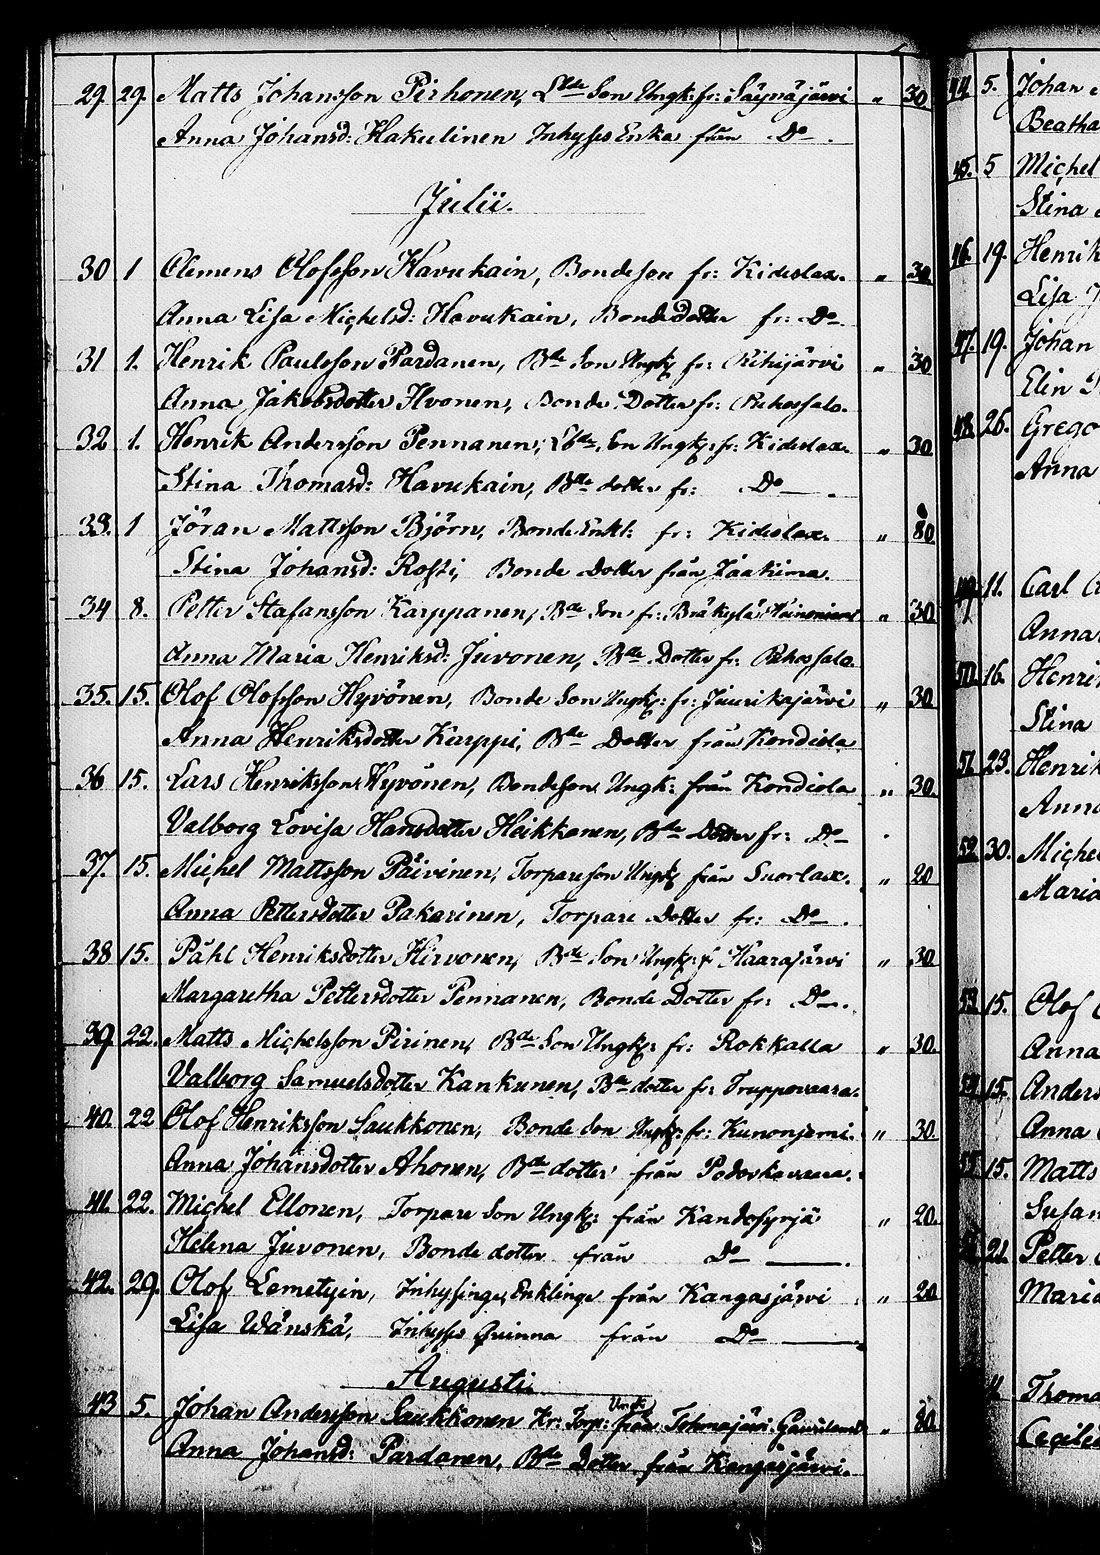 29. 29. Matts Johansson Pirhonen, Bde Son Ungk: fr: Säynäjärvi " 30
Anna Johansd: Hakulinen Inhyses Enka från Do
Julii.
30 1 Clemens Olofsson Havukain, Bondeson fr: Kideslax. " 30
Anna Lisa Michelsd: Havukain, Bondedotter fr: Do
31 1. Henrik Paulsson Pardanen, Bde Son Ungk fr: Riihijärvi " 30
Anna Jakobsdotter Ihvonen, Bonde Dotter fr: Puhossalo.
32 1. Henrik Andersson Pennanen, Bde Son Ungk: fr: Kideslax. " 30
Stina Thomasd: Havukain, Bde dotter fr: Do
33. 1 Jöran Mattsson Björn, Bonde Enkl: fr: Kideslax. " 80
Stina Johansd: Rosti, Bonde Dotter från Jaakima.
34 8. Petter Stafansson Karppanen, Bde Son fr: Bräkylä " 30
Anna Maria Henriksd: Juvonen, Bde Dotter fr: Puhossalo
35. 15. Olof Olofsson Hyvönen, Bonde Son Ungk: fr: Juurikajärvi " 30
Anna Henriksdotter Karppi, Bde Dotter från Kondiola
36 15. Lars Henriksson Hyvönen, Bondeson Ungk: från Kondiola " 30.
Valborg Lovisa Hansdotter Heikkonen, Bde Dotter fr: Do
37. 15. Michel Mattsson Päivinen, Torpareson Ungk från Suorlax. " 20
Anna Pettersdotter Pakarinen, Torpare Dotter fr: Do
38 15. Påhl Henriksdotter Hirvonen, Bde Son Ungk: f Haarajärvi " 30
Margaretha Pettersdotter Pennanen, Bonde Dotter fr: Do
39 22. Matts Michelsson Pirinen, Bde Son Ungk: fr: Rokkalla " 30.
Valborg Samuelsdotter Kankunen, Bde dotter fr: Truppovaara.
40. 22 Olof Henriksson Saukkonen, Bonde Son Ungk: fr: Kunonjemi. " 30.
Anna Johansdotter Ahonen, Bde dotter från Podorkavaara.
41. 22. Michel Ellonen, Torpare Son Ungk: från Kandosyrjä " 20.
Helena Juvonen, Bonde dotter från Do
42. 29. Olof Lemetyin, Inhysinges Enklinge från Kangasjärvi " 20
Lisa Wänskä, Inhyses Quinna från Do
Augusti
43 5. Johan Andersson Saukkonen Kr: Torp: från Tohmajärvi " 80.
Anna Johansd: Pardanen, Bde Dotter från Kangasjärvi.
44 5. Johan
Beatha
45. 5 Michel
Stina
46. 19. Henrik
Lisa
47. 19. Johan
Elin
48. 26. Grego
Anna
49. 11. Carl
Anna
50. 16. Henri
Stina
51. 23. Henrik
Anna
52. 30. Michel
Maria
53. 15. Olof
Anna
54. 15. Anders
Anna
55. 15. Matts
Susan
21. Petter
Maria
Thoma
Cecilia